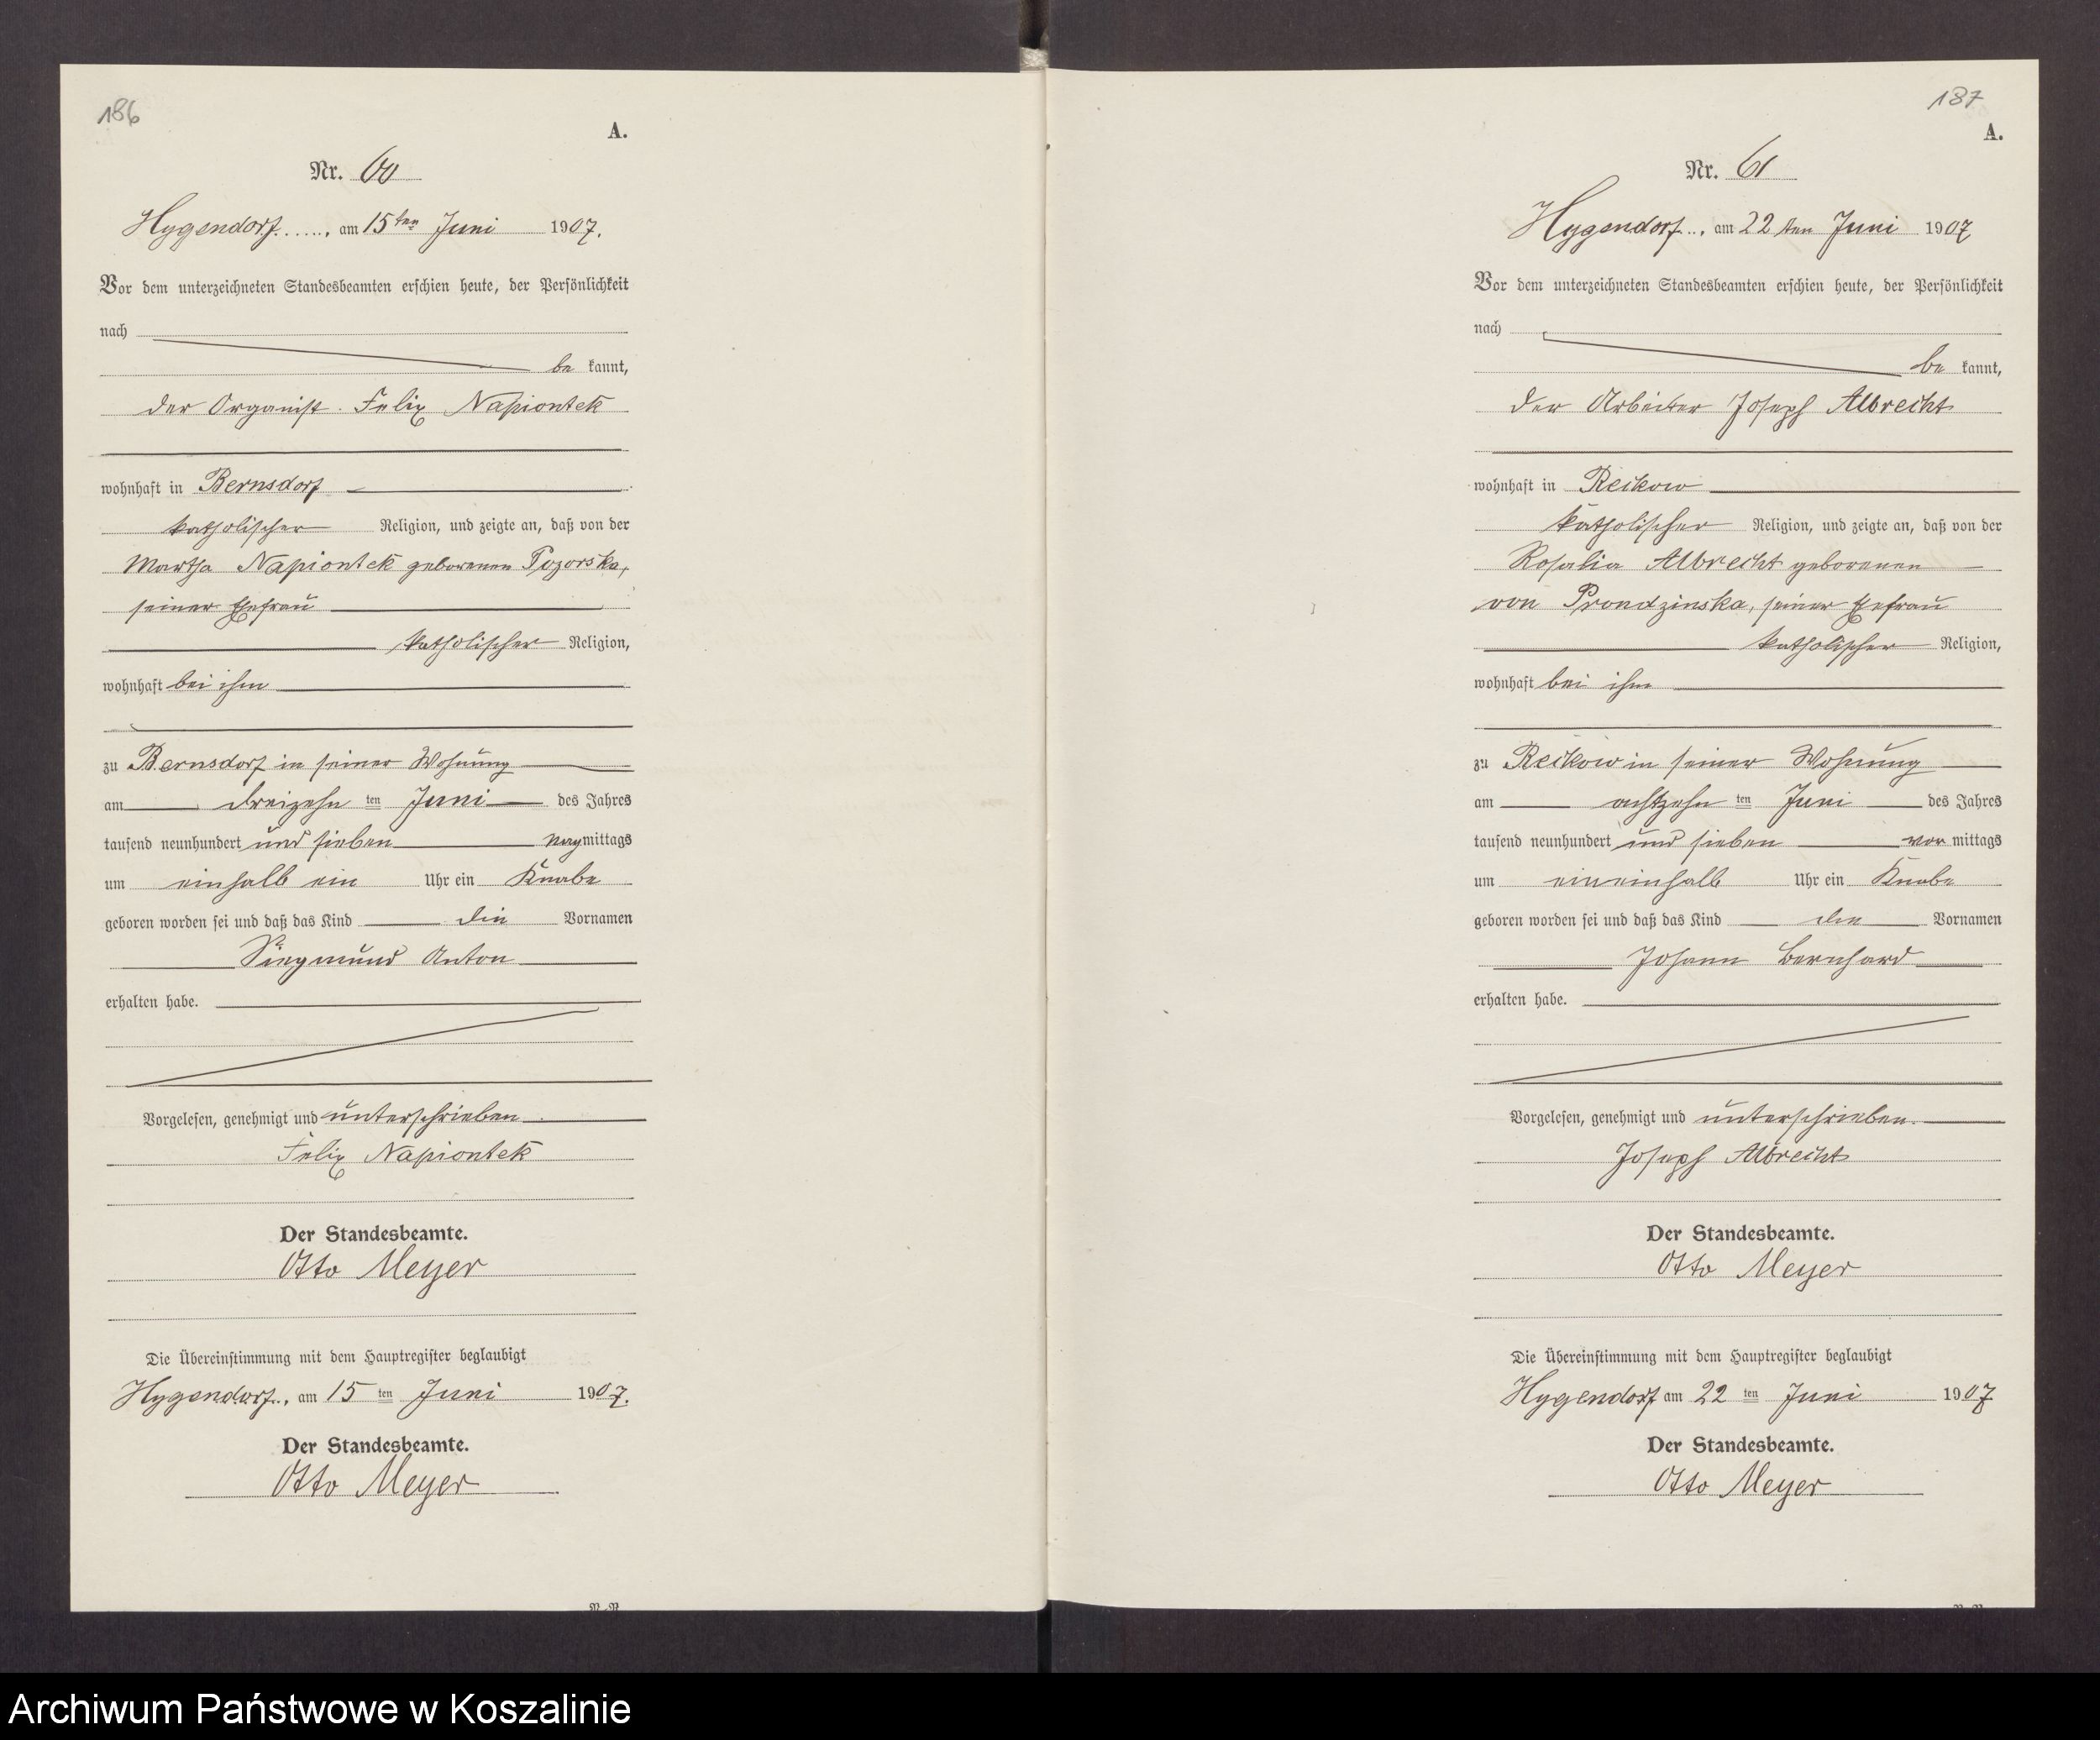 186
A.
Nr. 60
Hygendorf......, am 15ten Juni 1907.
Vor dem unterzeichneten Standesbeamten erschien heute, der Persönlichkeit
nach
be kannt,
der Organist Felix Napiontek
wohnhaft in Bernsdorf
katholischer Religion, und zeigte an, daß von der
Martha Napiontek geborenen Pozorska,
seiner Ehefrau
katholischer Religion,
wohnhaft bei ihm
zu Bernsdorf in seiner Wohnung
am dreizehn ten Juni des Jahres
tausend neunhundert und sieben nachmittags
um einhalb ein Uhr ein Knabe
geboren worden sei und daß das Kind die Vornamen
Siegmund Anton
erhalten habe.
Vorgelesen, genehmigt und unterschrieben
Felix Napiontek
Der Standesbeamte.
Otto Meyer
Die Übereinstimmung mit dem Hauptregister beglaubigt
Hygendorf.., am 15 ten Juni 1907.
Der Standesbeamte.
Otto Meyer
187
A.
Nr. 61
Hygendorf.., am 22 ten Juni 1907
Vor dem unterzeichneten Standesbeamten erschien heute, der Persönlichkeit
nach
be kannt,
der Arbeiter Joseph Albrecht
wohnhaft in Reikow
katholischer Religion, und zeigte an, daß von der
Rosalia Albrecht geborenen
von Prondzinska, seiner Ehefrau
katholischer Religion,
wohnhaft bei ihm
zu Reikow in seiner Wohnung
am achtzehn ten Juni des Jahres
tausend neunhundert und sieben vor mittags
um eineinhalb Uhr ein Knabe
geboren worden sei und daß das Kind die Vornamen
Johann Bernhard
erhalten habe.
Vorgelesen, genehmigt und unterschrieben.
Joseph Albrecht
Der Standesbeamte.
Otto Meyer
Die Übereinstimmung mit dem Hauptregister beglaubigt
Hygendorf am 22 ten Juni 1907
Der Standesbeamte.
Otto Meyer
Archiwum Państwowe w Koszalinie